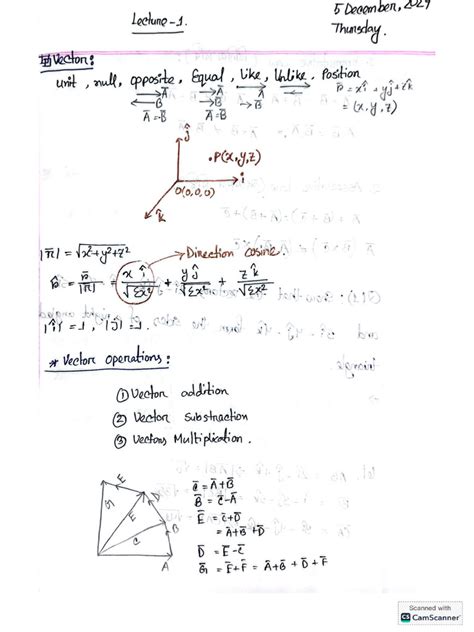 Lecture-1.
5 December, 2024
Thursday.
Vector:
unit, null, opposite, Equal, Like, Unlike, Position
A̅ A̅ A̅ r̅ = xî + yĵ + zk̂
B̅ B̅ B̅ = (x, y, z)
A̅ = B̅ A̅ = B̅
ĵ
P(x, y, z)
i
O(0, 0, 0)
k̂
|r̅| = √x² + y² + z²
Direction cosine.
r̂ = r̅/|r̅| = x î/√Σx² + y ĵ/√Σx² + z k̂/√Σx²
|î| = 1, |ĵ| = 1.
* Vector Operations:
① Vector addition
② Vector Substraction
③ Vectors Multiplication.
F
G
E
D
B
C
A
C̅ = A̅ + B̅
B̅ = C̅ - A̅
E̅ = C̅ + D̅
= A̅ + B̅ + D̅
D̅ = E̅ - C̅
G̅ = E̅ + F̅ = A̅ + B̅ + D̅ + F̅
Scanned with
CS CamScanner